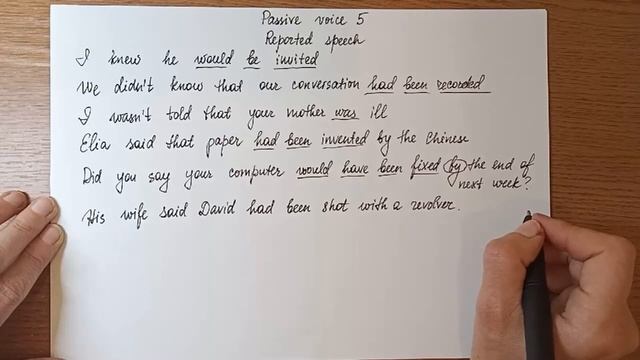 Passive voice 5
Reported speech
I knew he would be invited
We didn't know that our conversation had been recorded
I wasn't told that your mother was ill
Elia said that paper had been invented by the Chinese
Did you say your computer would have been fixed by the end of
next week?
His wife said David had been shot with a revolver.